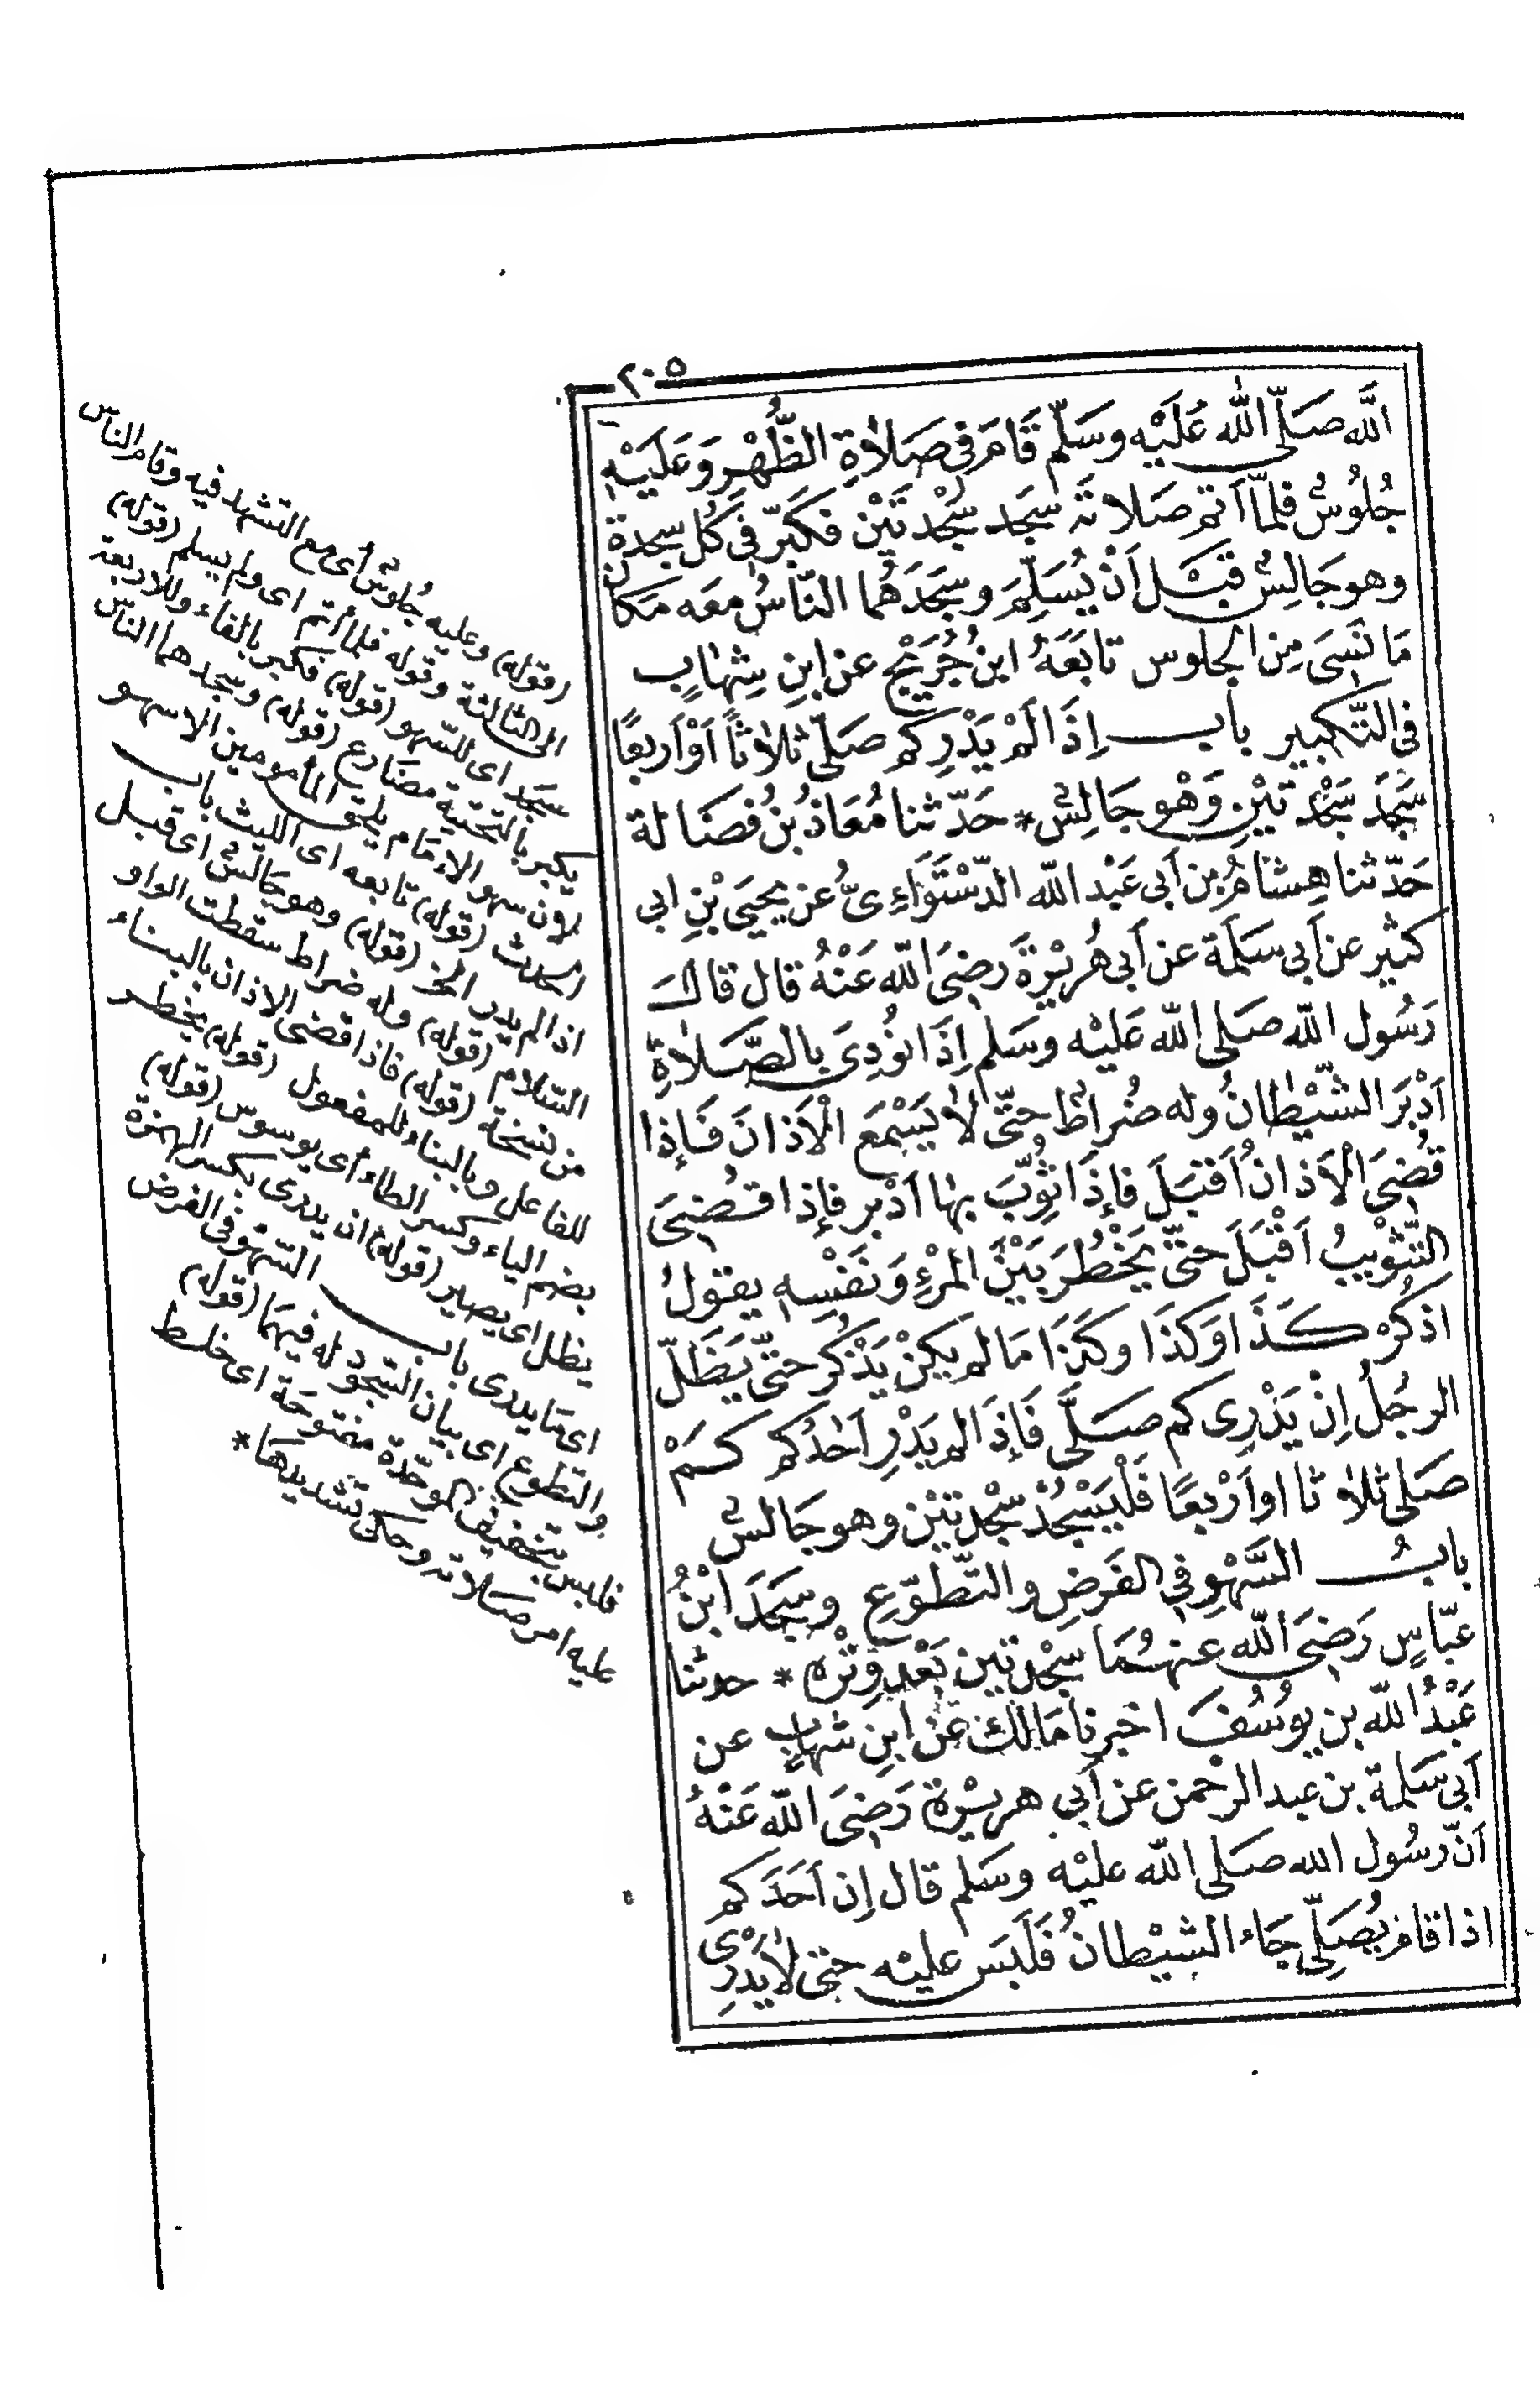 ٢٠٥
اللَّه صَلّى اللّٰه عَلَيْه وسَلّم قَامَ فى صَلاةِ الظُّهْرِ وَعَلَيْهِ
جُلُوسٌ فلمّا اَتم صَلاتَه سَجَد سَجْدتَيْن فكَبَّر فى كُل سجدة
وهو جَالِسٌ قَبْل اَنْ يُسَلِّمَ وسَجَدَهُما النّاسُ معَه مَكانَ
مَا نَسَى مِن الجلوس تابَعَهُ ابنُ جُرَيْجٍ عن ابنِ شِهابٍ
فى التَّكبير باب اِذَا لَمْ يَدْرِ كم صَلّى ثلاثاً اَوْ اَربعًا
سَجَدَ سَجْدتَيْنِ وَهْو جَالِسٌ * حَدّثنا مُعَاذُ بنُ فُضَالة
حَدّثنا هِشَامُ بن اَبى عَبْد اللّه الدّسْتَوَاءِىُّ عن يحيَى بْنِ ابى
كثير عن اَبى سَلَمة عن اَبى هُرَيْرةَ رَضِىَ اللّه عَنْهُ قال قال
رَسُول اللّه صَلى اللّه عَليْه وسَلم اِذَا نوُدِىَ بالصَّلاةِ
اَدْبَرَ الشّيْطانُ وله ضُراطٌ حتّى لا يَسْمَع الْاَذانَ فَاِذا
قُضِىَ الْاَذانُ اَقْبَلَ فاِذَا ثُوِّبَ بها اَدْبر فاِذا قُضِىَ
التّثْوِيبُ اَقْبَلَ حتّى يَخْطُرَ بَيْنَ المرْءِ وَنَفْسِهِ يقولُ
اذكُرْ كَذَا وَكَذَا وكَذَا مَا لم يكنْ يَذْكُر حتّى يَظَلّ
الرجُلُ اِنْ يَدْرِى كم صَلَّى فَاِذَا لم يَدْرِ اَحَدُكم كَمْ
صَلى ثلاثا او اَرْبعًا فَلْيَسْجُدْ سَجْدتيْن وهو جَالسٌ
بابُ السَّهْوِ فى الفَرضِ والتّطوّعِ وسَجَدَ ابْنُ
عبّاسٍ رَضِىَ اللّه عنهُمَا سَجْدتين بَعْد وِتْرِه * حدثنا
عَبْدُ اللّه بن يوُسُفَ اخبرنا مَالك عَن ابنِ شهابٍ عن
اَبى سَلمة بن عبد الرحْمن عن اَبى هريْرة رَضِىَ اللّه عَنْهُ
اَنّ رسُول الله صَلى اللّه عليْه وسَلم قال اِن اَحَدَكم
اذا قام يُصَلِّى جَاءَ الشيْطانُ فَلَبَس عليْه حتى لا يَدْرِى
(قوله) وعليه جُلوسٌ أى مع التشهد فيه وقام الناس
الى الثالثة وقوله فلما أتم اى ولم يسلم (قوله)
سجَد اى للسّهو (قوله) فكبر بالفاء وللاربعة
يكبر بالتحتية مضَارع (قوله) وسجدهما الناس
لان سهو الامَام يلحق المأمومين الا سهو
الحدث (قوله) تابعه اى الليث باب
اذا لم يدر الخ (قوله) وهو جَالسٌ اى قبل
السّلام (قوله) وله ضراط سقطت الواو
من نسخة (قوله) فاذا قضى الاذان بالبناء
للفاعل وبالبناء للمفعول (قوله) يخطر
بضم الياء وكسر الطاء أى يوسوس (قوله)
يظل اى يصير (قوله) ان يدرى بكسر الهمزة
اى مَا يدرى باب السّهو فى الفرض
والتطوع اى بيان السجود له فيهمَا (قوله)
فلبس بتخفيف الموحّدة مفتوحَة اى خلط
عليه امر صَلاته وحكى تشديدهَا *